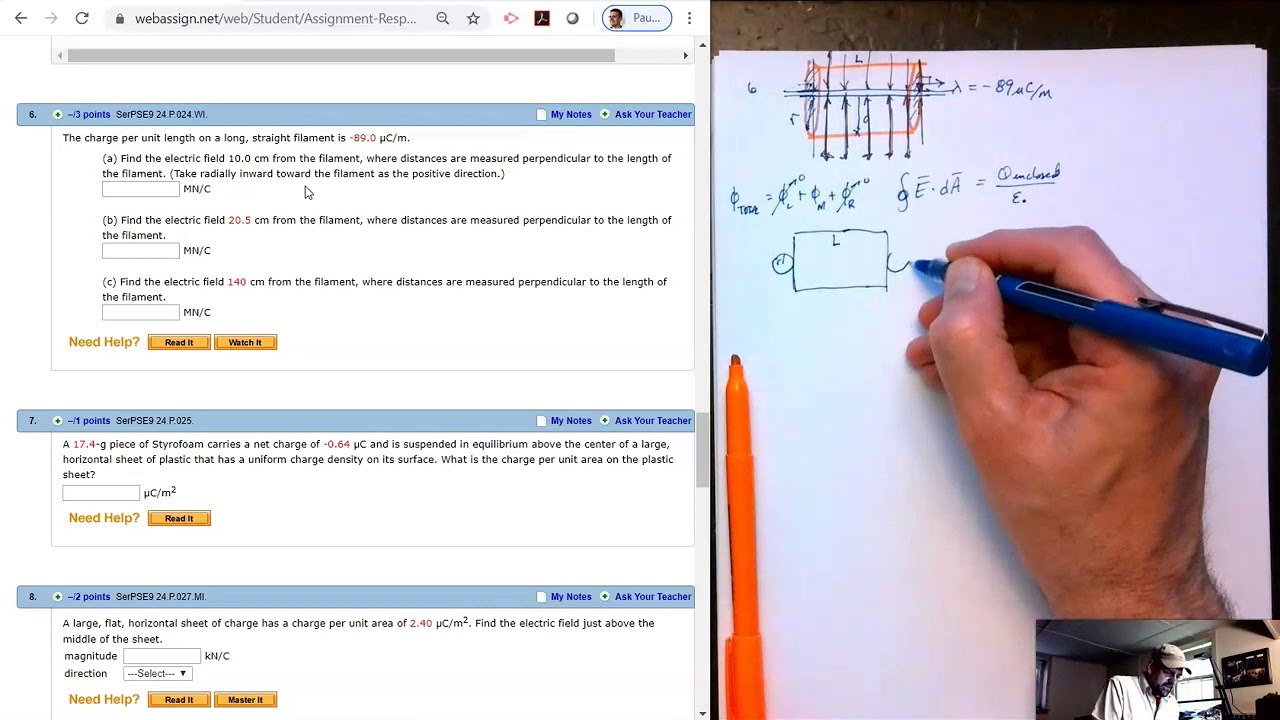 webassign.net/web/Student/Assignment-Resp...
Pau...
6. –/3 points SerPSE9 24.P.024.WI. My Notes Ask Your Teacher
The charge per unit length on a long, straight filament is -89.0 µC/m.
(a) Find the electric field 10.0 cm from the filament, where distances are measured perpendicular to the length of
the filament. (Take radially inward toward the filament as the positive direction.)
MN/C
(b) Find the electric field 20.5 cm from the filament, where distances are measured perpendicular to the length of
the filament.
MN/C
(c) Find the electric field 140 cm from the filament, where distances are measured perpendicular to the length of
the filament.
MN/C
Need Help? Read It Watch It
7. –/1 points SerPSE9 24.P.025. My Notes Ask Your Teacher
A 17.4-g piece of Styrofoam carries a net charge of -0.64 µC and is suspended in equilibrium above the center of a large,
horizontal sheet of plastic that has a uniform charge density on its surface. What is the charge per unit area on the plastic
sheet?
µC/m²
Need Help? Read It
8. –/2 points SerPSE9 24.P.027.MI. My Notes Ask Your Teacher
A large, flat, horizontal sheet of charge has a charge per unit area of 2.40 µC/m². Find the electric field just above the
middle of the sheet.
magnitude kN/C
direction ---Select---
Need Help? Read It Master It
L
6 λ = -89 µC/m
r d
ϕ_TOTAL = ϕ_L + ϕ_M + ϕ_R ∮ E̅ · dA̅ = Q enclosed / ε₀
L